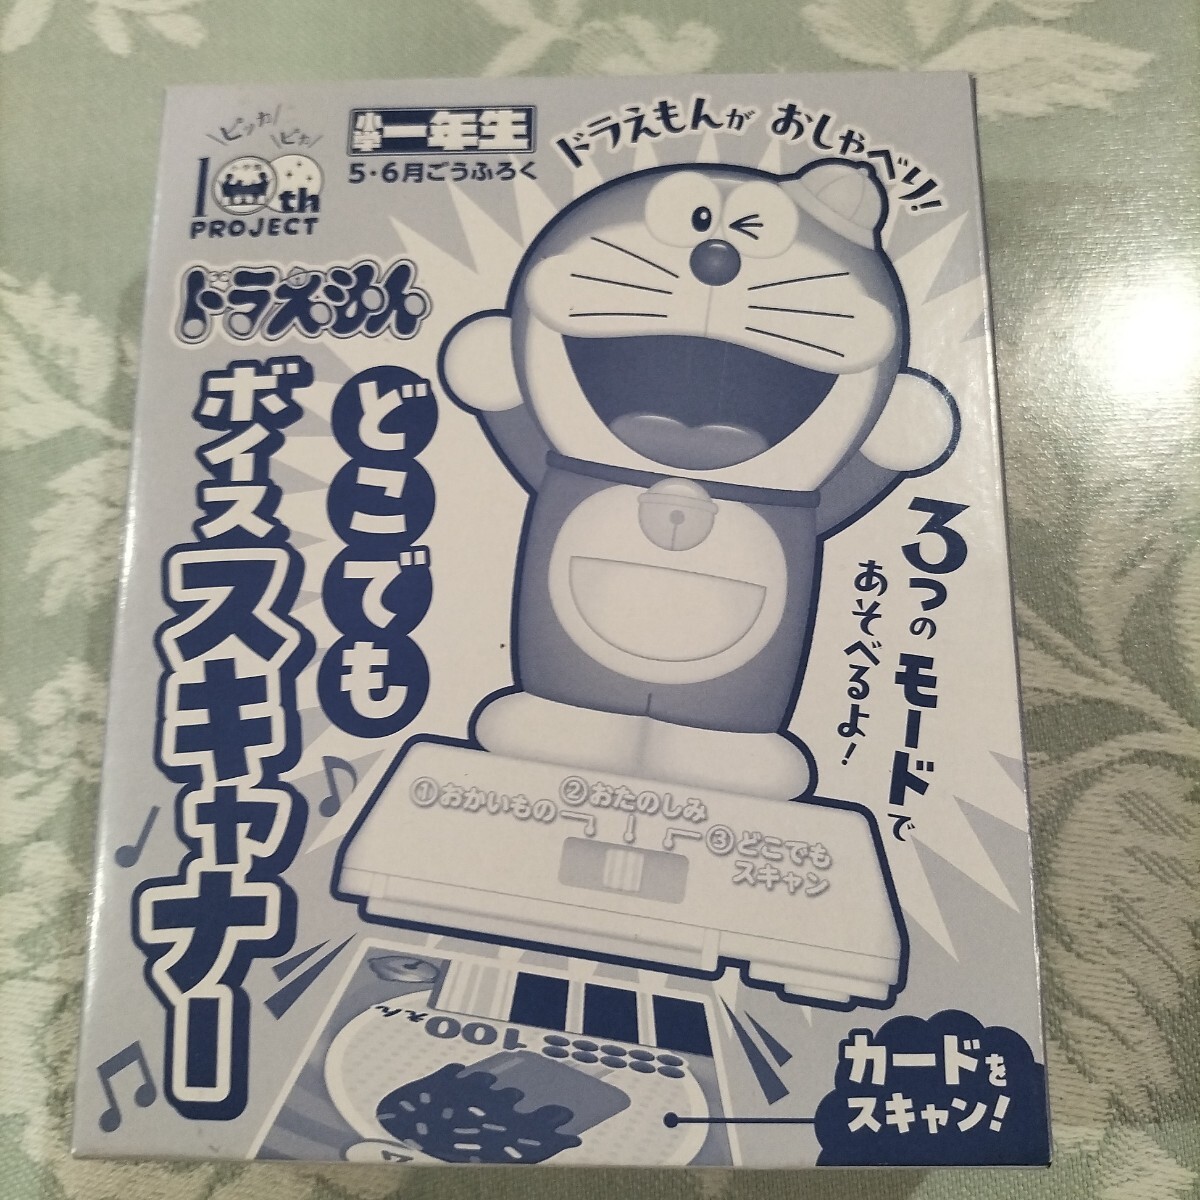 ピッカ
ピカ
100th
PROJECT
小学一年生
5・6月ごうふろく
ドラえもんが おしゃべり!
ドラえもん
どこでも
ボイススキャナー
3つのモードで
あそべるよ!
①おかいもの
②おたのしみ
③どこでも
スキャン
100えん
カードを
スキャン!